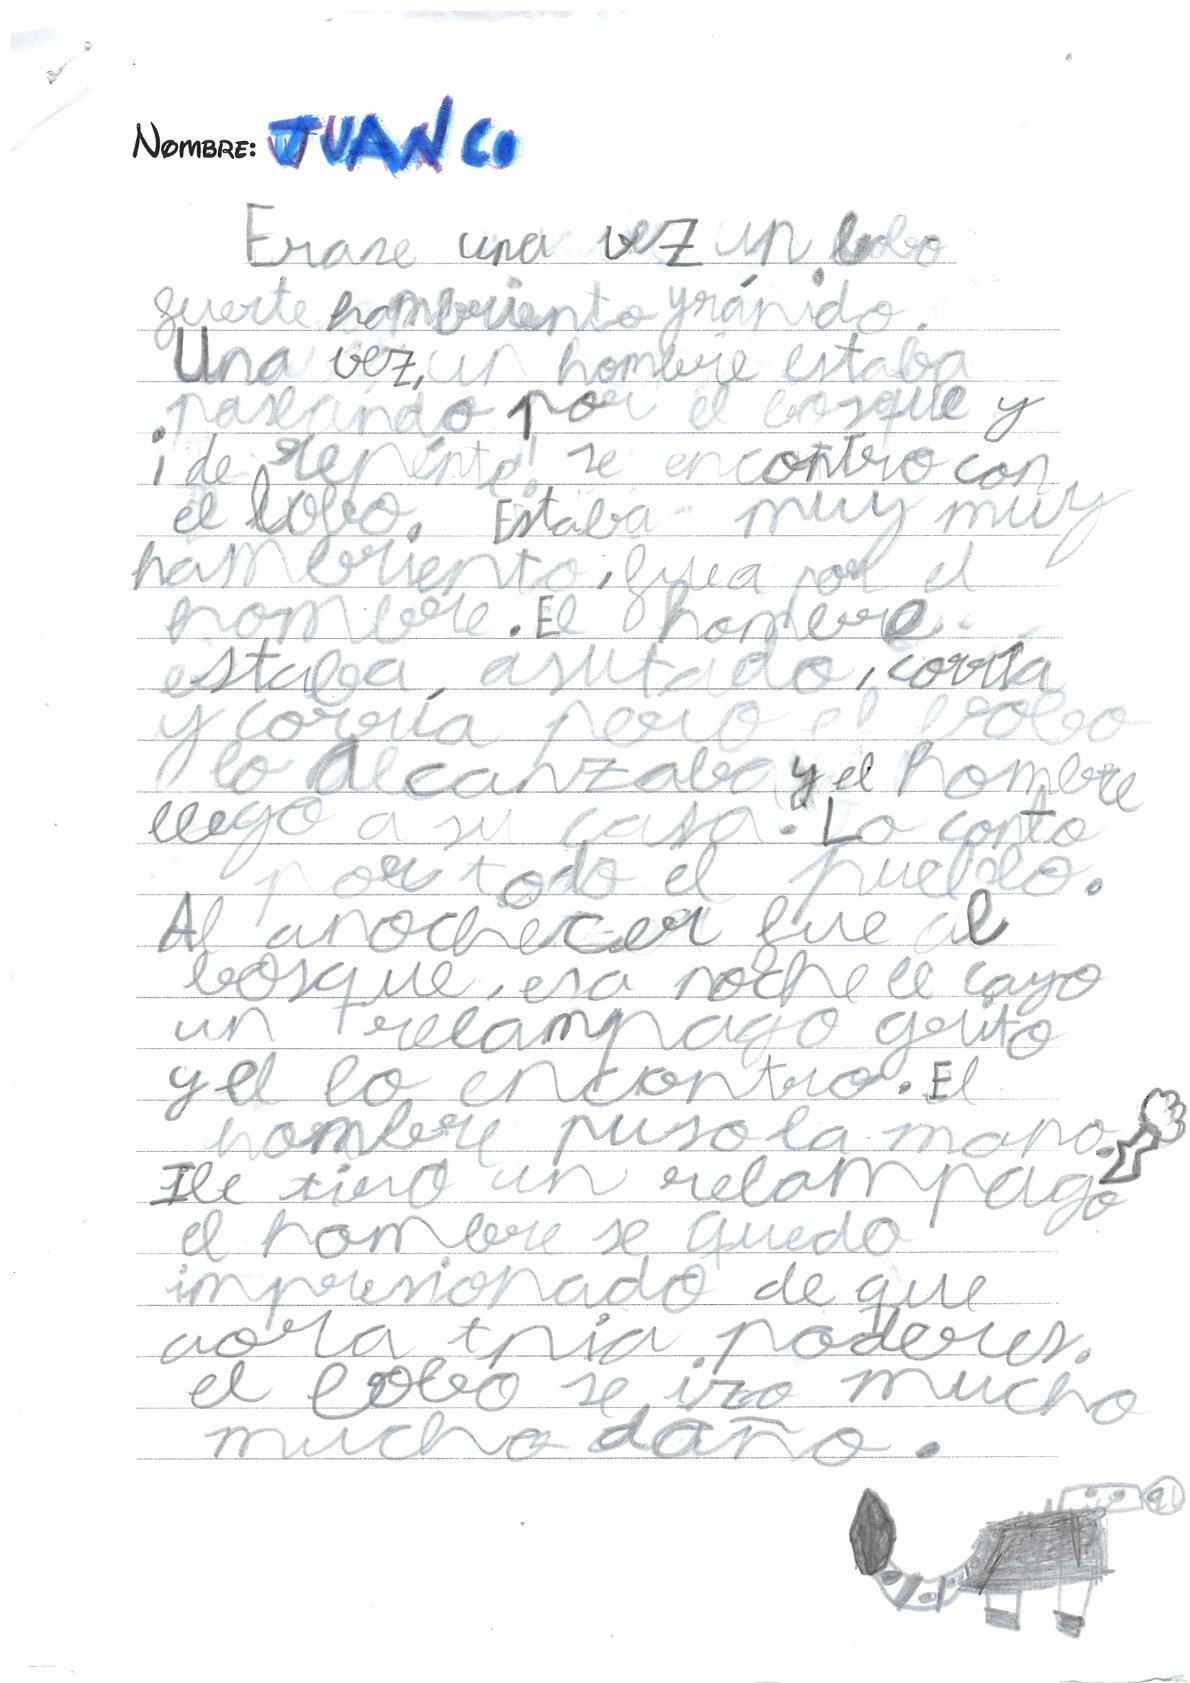 NOMBRE: JUANCO
Erase una vez un lobo
fuerte hambriento y rápido.
Una vez, un hombre estaba
paseando por el bosque y
¡de repente! se encontro con
el lobo. Estaba muy muy
hambriento, fue a por el
hombre. El hombre
estaba asutado, corría
y corría pero el lobo
lo alcanzaba y el hombre
llego a su casa. Lo conto
por todo el pueblo.
Al anochecer fue al
bosque, esa noche le cayo
un relampago
y el lo encontro. El
hombre puso la mano.
I le tiro un relampago
el hombre se quedo
impresionado de que
aora tnia poderes.
el lobo se izo mucho
mucho daño.